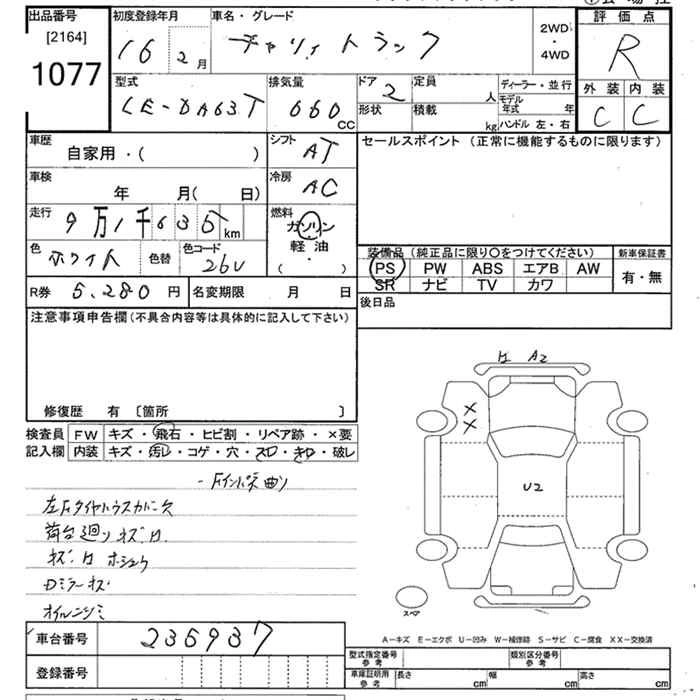 出品番号 初度登録年月 車名・グレード 評価点
[2164] 16 2月 キャリィトラック 2WD・4WD R
1077
型式 排気量 ドア 定員 ディーラー・並行 外装 内装
LE-DA63T 660cc 2 人 モデル年式 年 C C
形状 積載 kg ハンドル 左・右
車歴 自家用・( ) シフト AT セールスポイント (正常に機能するものに限ります)
車検 年 月( 日) 冷房 AC
走行 9万1千635km 燃料 ガソリン
軽油
・
( )
色 ホワイト 色替 色コード 26U
装備品 (純正品に限り○をつけてください) 新車保証書
PS PW ABS エアB AW 有・無
SR ナビ TV カワ
R券 5,280円 名変期限 月 日 後日品
注意事項申告欄(不具合内容等は具体的に記入して下さい)
修復歴 有 [箇所 ]
検査員 FW キズ・飛石・ヒビ割・リペア跡・×要
記入欄 内装 キズ・汚レ・コゲ・穴・スレ・キレ・破レ
-Fインパネ曲リ
左Fタイヤハウスカバー欠
荷台廻リキズH
キズH ホシュウ
Dミラーキズ
オイルニジミ
H A2
×
×
U2
スペア
A−キズ E−エクボ U−凹み W−補修跡 S−サビ C−腐食 XX−交換済
車台番号 235937
登録番号
型式指定番号 参考 類別区分番号 参考
車庫証明用 参考 長さ cm 幅 cm 高さ cm